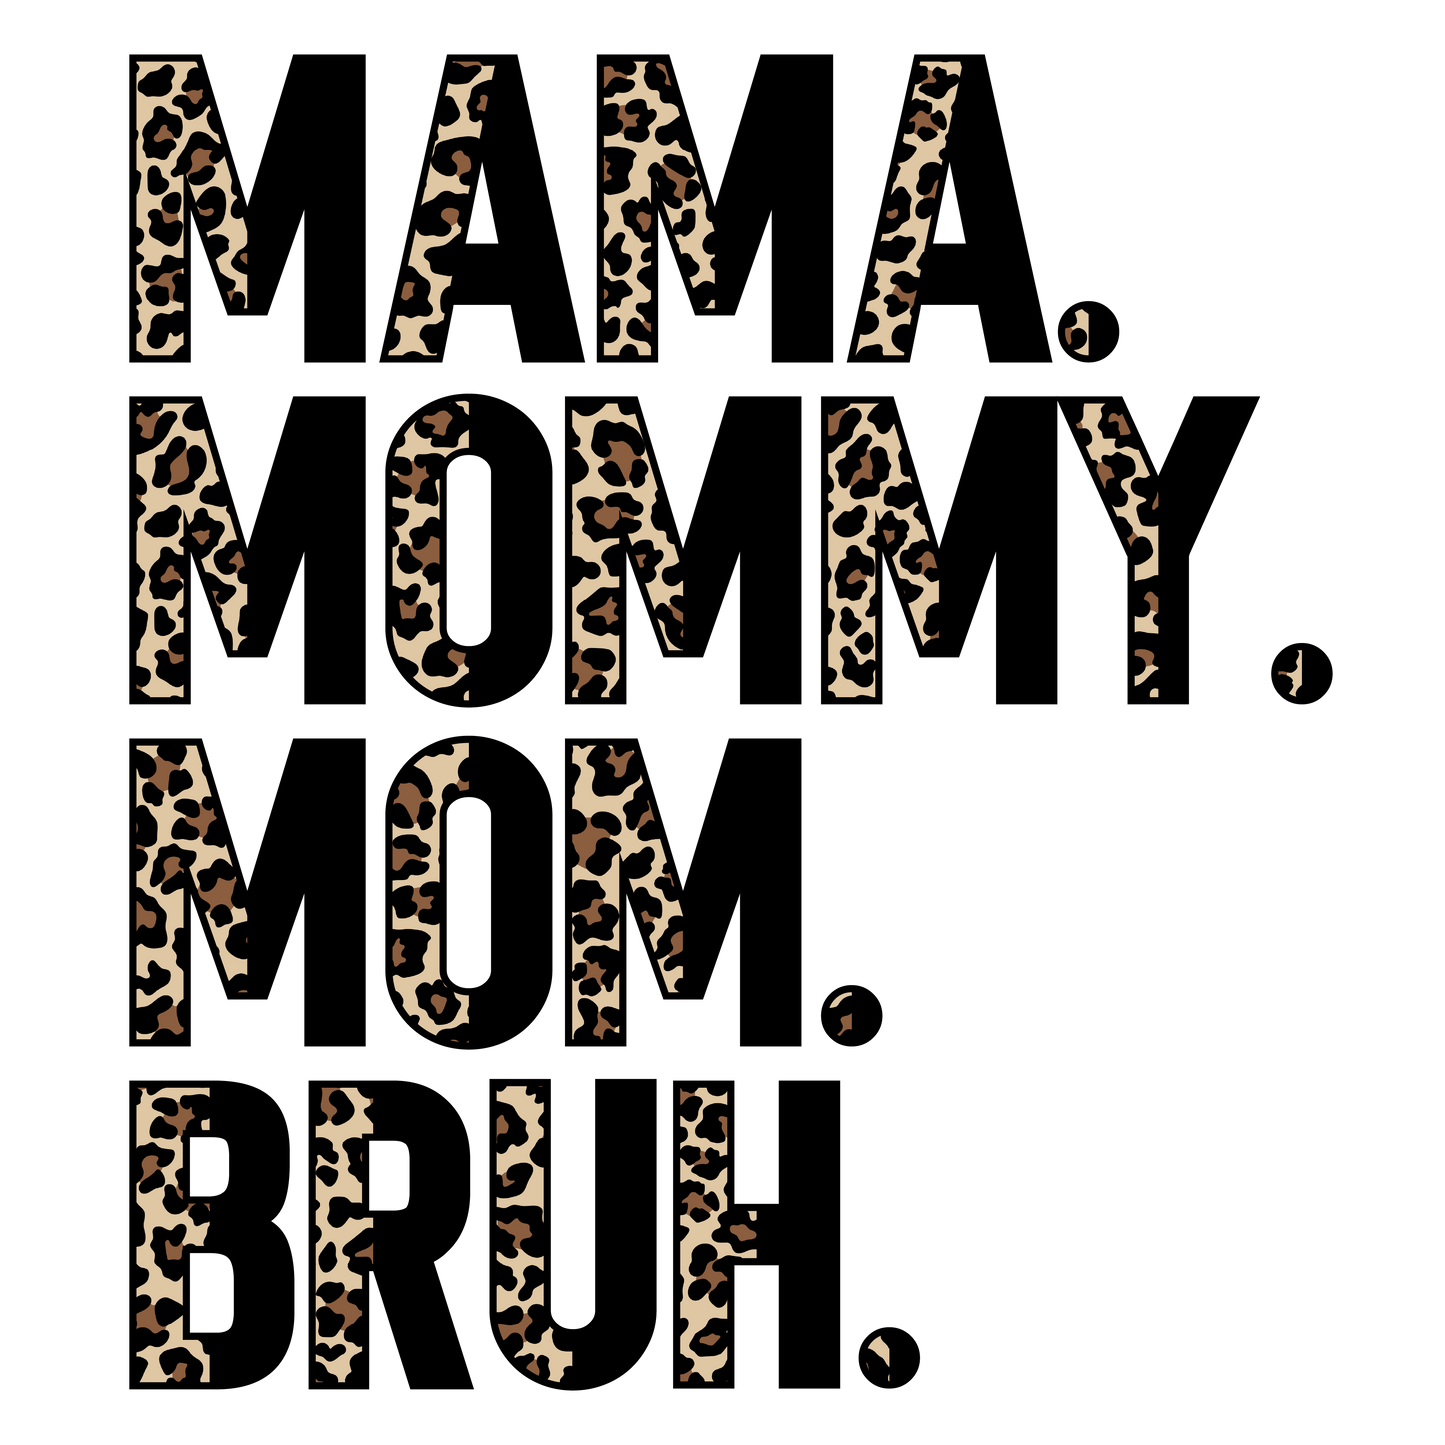 MAMA.
MOMMY.
MOM.
BRUH.